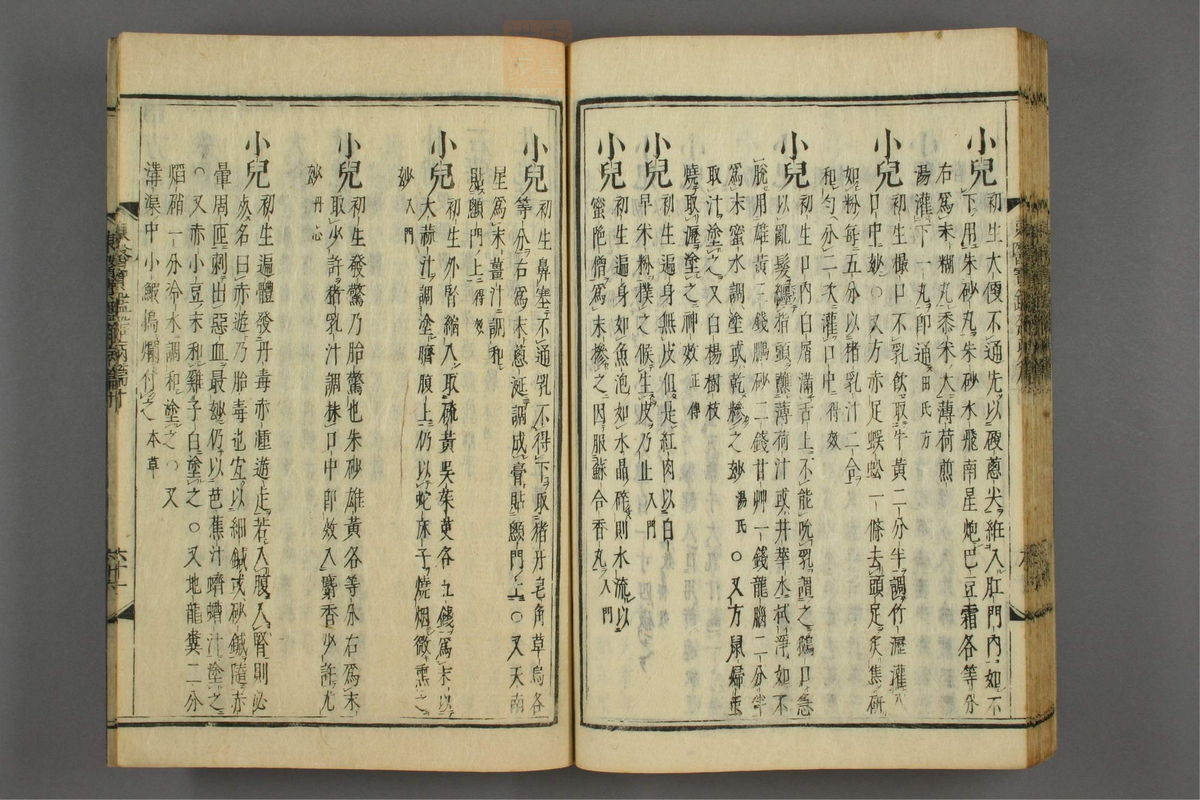 小兒初生大便不通先以硬蔥尖絍入肛門內如不
下用朱砂丸朱砂水飛南星炮巴豆霜各等分
右爲末糊丸黍米大薄荷煎
湯灌下一丸卽通田氏方
小兒初生撮口不乳飲取牛黃二分半調竹瀝灌入
口中妙○又方赤足蜈蚣一條去頭足炙焦硏
如粉每五分以猪乳汁二合
和勻分二次灌口中得效
小兒初生口內白屑滿舌上不能吮乳謂之鵝口急
以亂髮纏指頭蘸薄荷汁或井華水拭淨如不
脫用雄黃三錢鵬砂二錢甘艸一錢龍腦二分半
爲末蜜水調塗或乾糝之妙湯氏○又方鼠婦虫
取汁塗之又白楊樹枝
燒取瀝塗之神效正傳
小兒初生遍身無皮俱是紅肉以白
早米粉撲之候生皮乃止入門
小兒初生遍身如魚泡如水晶碎則水流以
蜜陀僧爲末摻之因服蘇合香丸入門
小兒初生鼻塞不通乳不得下取猪牙皂角草烏各
等分右爲末蔥涎調成膏貼顖門上○又天南
星爲末薑汁調和
貼顖門上得效
小兒初生外腎縮入取硫黃吳茱萸各五錢爲末以
大蒜汁調塗臍腹上仍以蛇床子燒烟微熏之
妙入門
小兒初生發驚乃胎驚也朱砂雄黃各等分右爲末
取少許猪乳汁調抹口中卽效入麝香少許尤
妙丹心
小兒初生遍體發丹毒赤腫遊走若入腹入腎則必
死名曰赤遊乃胎毒也宜以細鍼或砂鍼隨赤
暈周匝刺出惡血最妙仍以芭蕉汁蠐螬汁塗之
○又赤小豆末和雞子白塗之○又地龍糞二分
焰硝一分冷水調和塗之○又
溝渠中小鰕搗爛付之本草